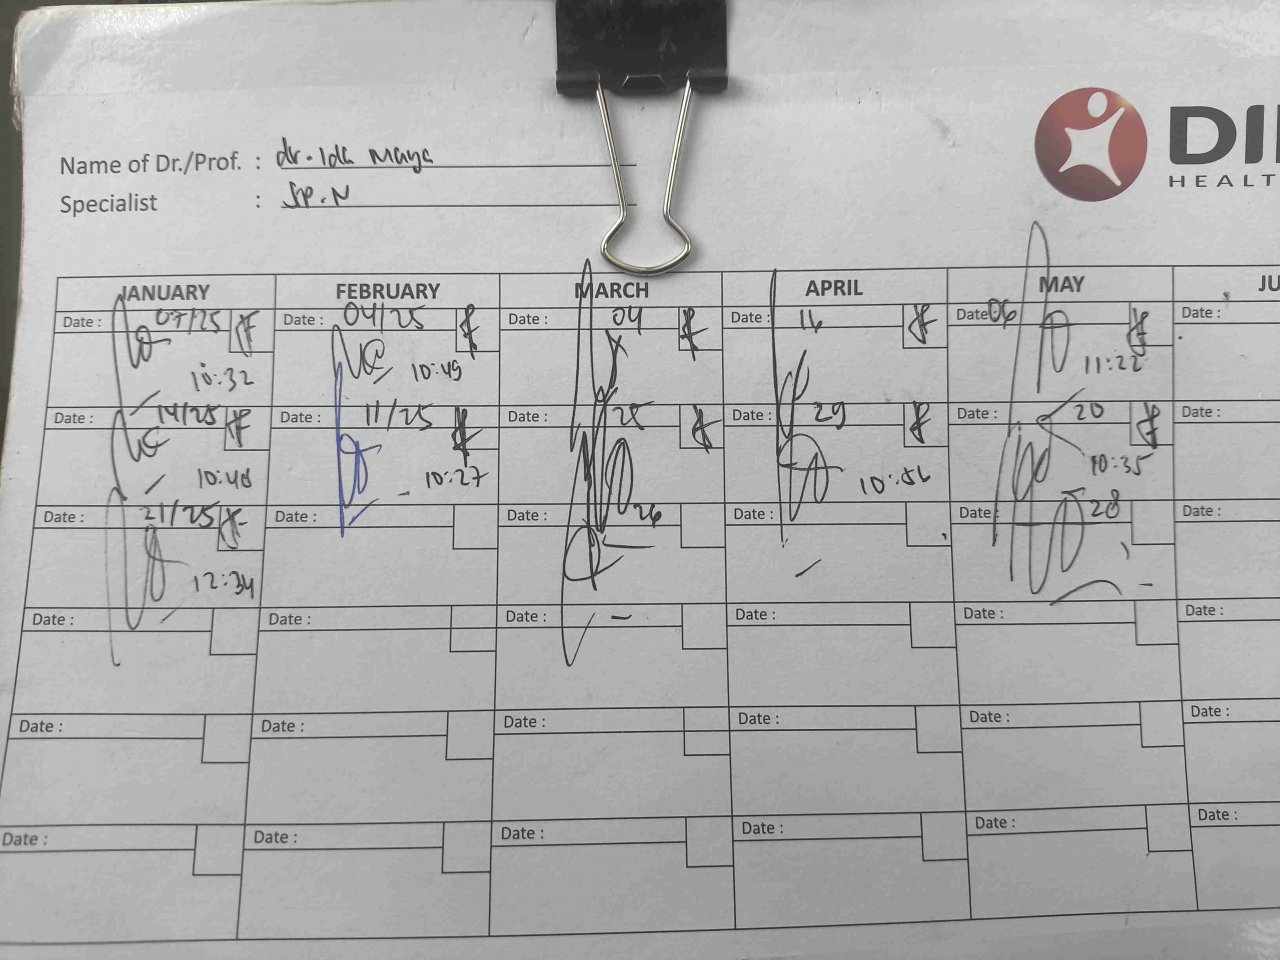 Name of Dr./Prof. : dr. Ida Maya
Specialist : Sp.N
DI
HEALT
JANUARY FEBRUARY MARCH APRIL MAY JU
Date : 07/25 Date : 04/25 Date : 04 Date : 16 Date 06 Date :
10:32 10:49 11:22
Date : 14/25 Date : 11/25 Date : 25 Date : 29 Date : 20 Date :
10:48 10:27 10:56 10:35
Date : 21/25 Date : Date : 26 Date : Date : 28 Date :
12:34
Date : Date : Date : Date : Date : Date :
Date : Date : Date : Date : Date : Date :
Date : Date : Date : Date : Date : Date :